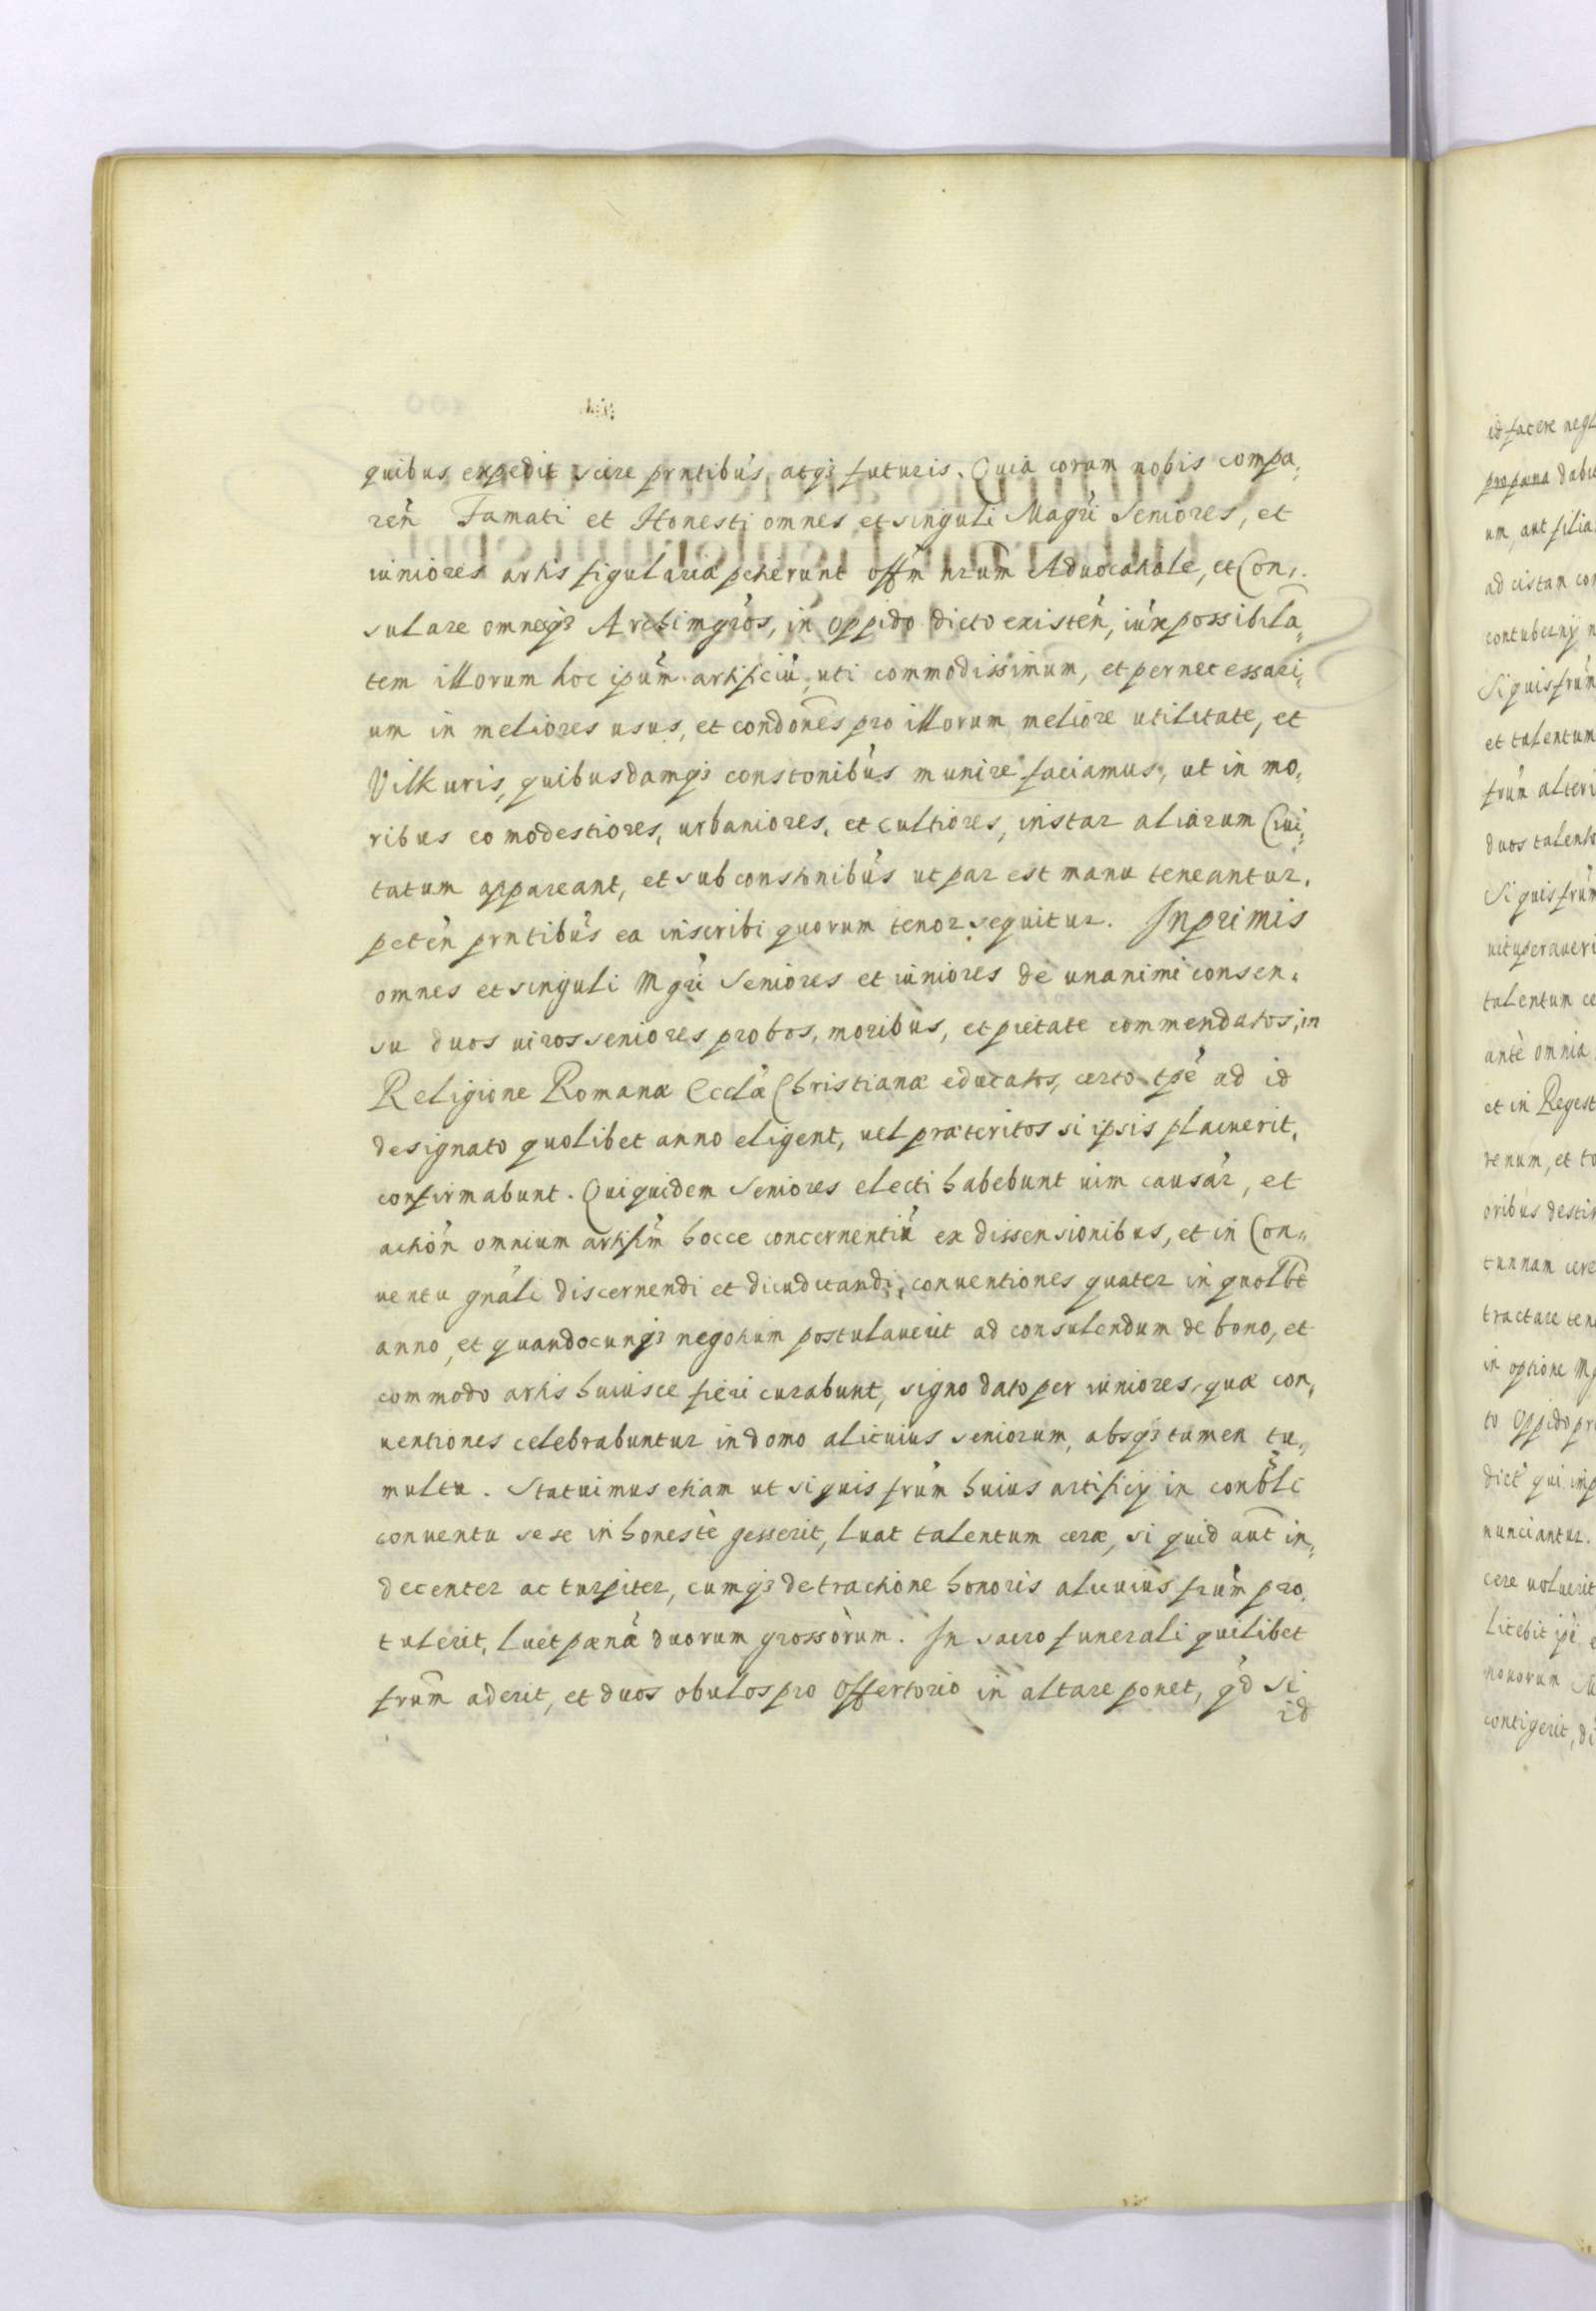 quibus expedit scire prntibús, atq3 futuris. Quia coram nobis compa,
ren̄ Famati et Honesti omnes et singuli Magri Seniores, et
iuniores artis figularia petierunt offm nrum Aduocatiale, et Con,
sulare omnesq3 Archimgros, in oppido dicto existen̄, iux possibila,
tem illorum hoc ipum artificiu, uti commodissimum, et pernecessari,
um in meliores usus, et condones pro illorum meliore utilitate, et
Vilkuris, quibusdamq3 constonibús munire faciamus, ut in mo,
ribus eo modestiores, urbaniores, et cultiores, instar aliarum Ciui,
tatum appareant, et sub constonibús ut par est manu teneantur.
peten̄ prntibús ea inscribi quorum tenor sequitur. Inprimis
omnes et singuli Mgri Seniores et iuniores de unanimi consen,
su duos uiros seniores probos, moribus, et pietate commendatos, in
Religione Romanæ Ecclæ Christianæ educatos, certo tpe ad id
designato quolibet anno eligent, uel præteritos si ipsis placuerit,
confirmabunt. Qui quidem Seniores electi habebunt uim causar, et
action̄ omnium artifm hocce concernentiu ex dissensionibus, et in Con,
uentu gnali discernendi et diiudicandi, conuentiones quater in quolbt
anno, et quandocunq3 negotium postulauerit ad consulendum de bono, et
commodo artis huiusce fieri curabunt, signo dato per iuniores, quæ con,
uentiones celebrabuntur in domo alicuius seniorum, absq3 tamen tu,
multu. Statuimus etiam ut si quis frum huius artificij in conble
conuentu sese inhonestè gesserit, luat talentum ceræ, si quid aut in,
decenter ac turpiter, cumq3 detractione honoris alicuius frum pro,
tulerit, luet pœna duorum grossorum. In sacro funerali quilibet
frum aderit, et duos obulos pro offertorio in altare ponet, qd si
id